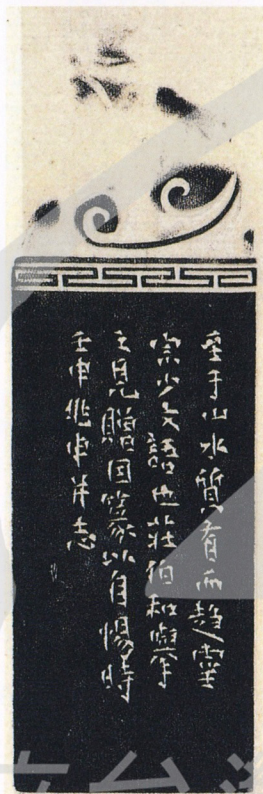 至于山水質有而趣靈
宗少文語也莊伯和學
兄見贈因篆以自惕時
壬申兆申并志